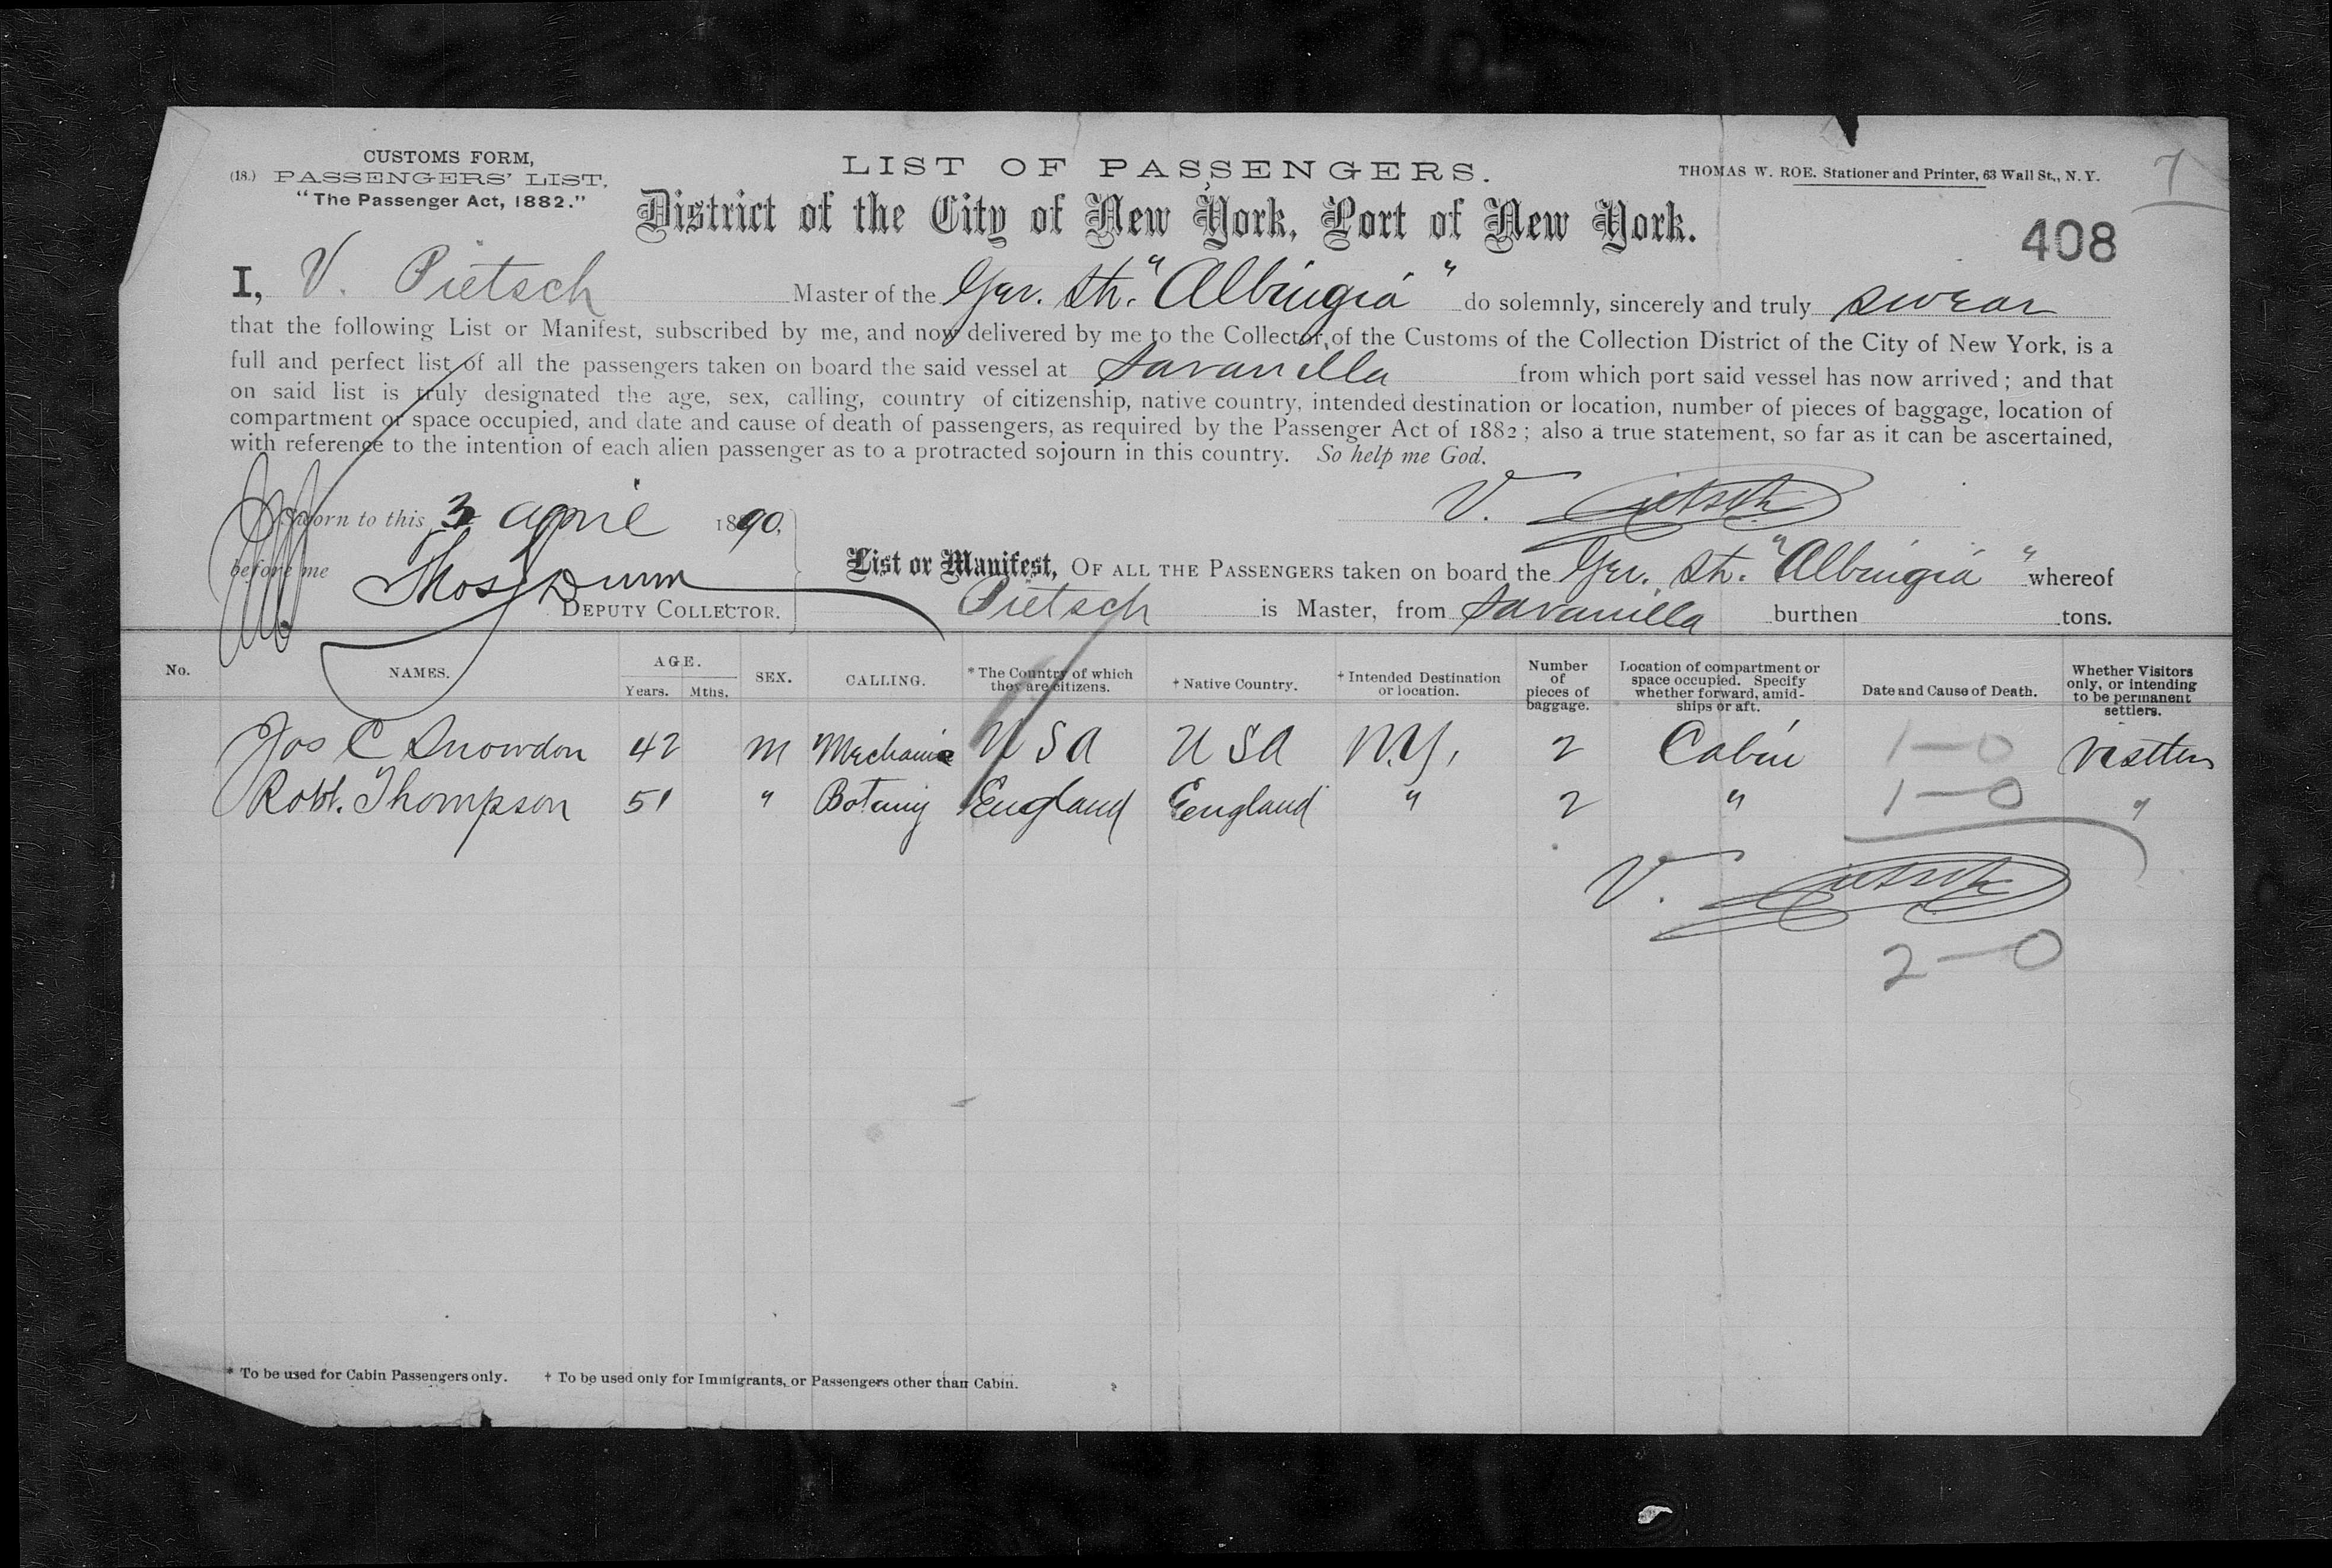 CUSTOMS FORM,
(18.) PASSENGERS' LIST,
"The Passenger Act, 1882."
LIST OF PASSENGERS.
THOMAS W. ROE. Stationer and Printer, 63 Wall St., N.Y.
7
District of the City of New York, Port of New York.
408
I, V. Pietsch Master of the Ger. Str. "Albingia" do solemnly, sincerely and truly swear
that the following List or Manifest, subscribed by me, and now delivered by me to the Collector, of the Customs of the Collection District of the City of New York, is a
full and perfect list of all the passengers taken on board the said vessel at Savanilla from which port said vessel has now arrived; and that
on said list is truly designated the age, sex, calling, country of citizenship, native country, intended destination or location, number of pieces of baggage, location of
compartment or space occupied, and date and cause of death of passengers, as required by the Passenger Act of 1882; also a true statement, so far as it can be ascertained,
with reference to the intention of each alien passenger as to a protracted sojourn in this country. So help me God.
V. Pietsch
Sworn to this 3 April 1890,
before me Thos Dunn
DEPUTY COLLECTOR.
List or Manifest, OF ALL THE PASSENGERS taken on board the Ger. Str. "Albingia" whereof
Pietsch is Master, from Savanilla burthen tons.
No. NAMES. AGE. Years. Mths. SEX. CALLING. * The Country of which they are citizens. † Native Country. † Intended Destination or location. Number of pieces of baggage. Location of compartment or space occupied. Specify whether forward, amid-ships or aft. Date and Cause of Death. Whether Visitors only, or intending to be permanent settlers.
Jos C Snowdon 42 M Mechanic U S A U S A N.Y. 2 Cabin 1-0
Robt. Thompson 51 " Botany England England " 2 " 1-0 "
V. Pietsch
2-0
* To be used for Cabin Passengers only. † To be used only for Immigrants, or Passengers other than Cabin.